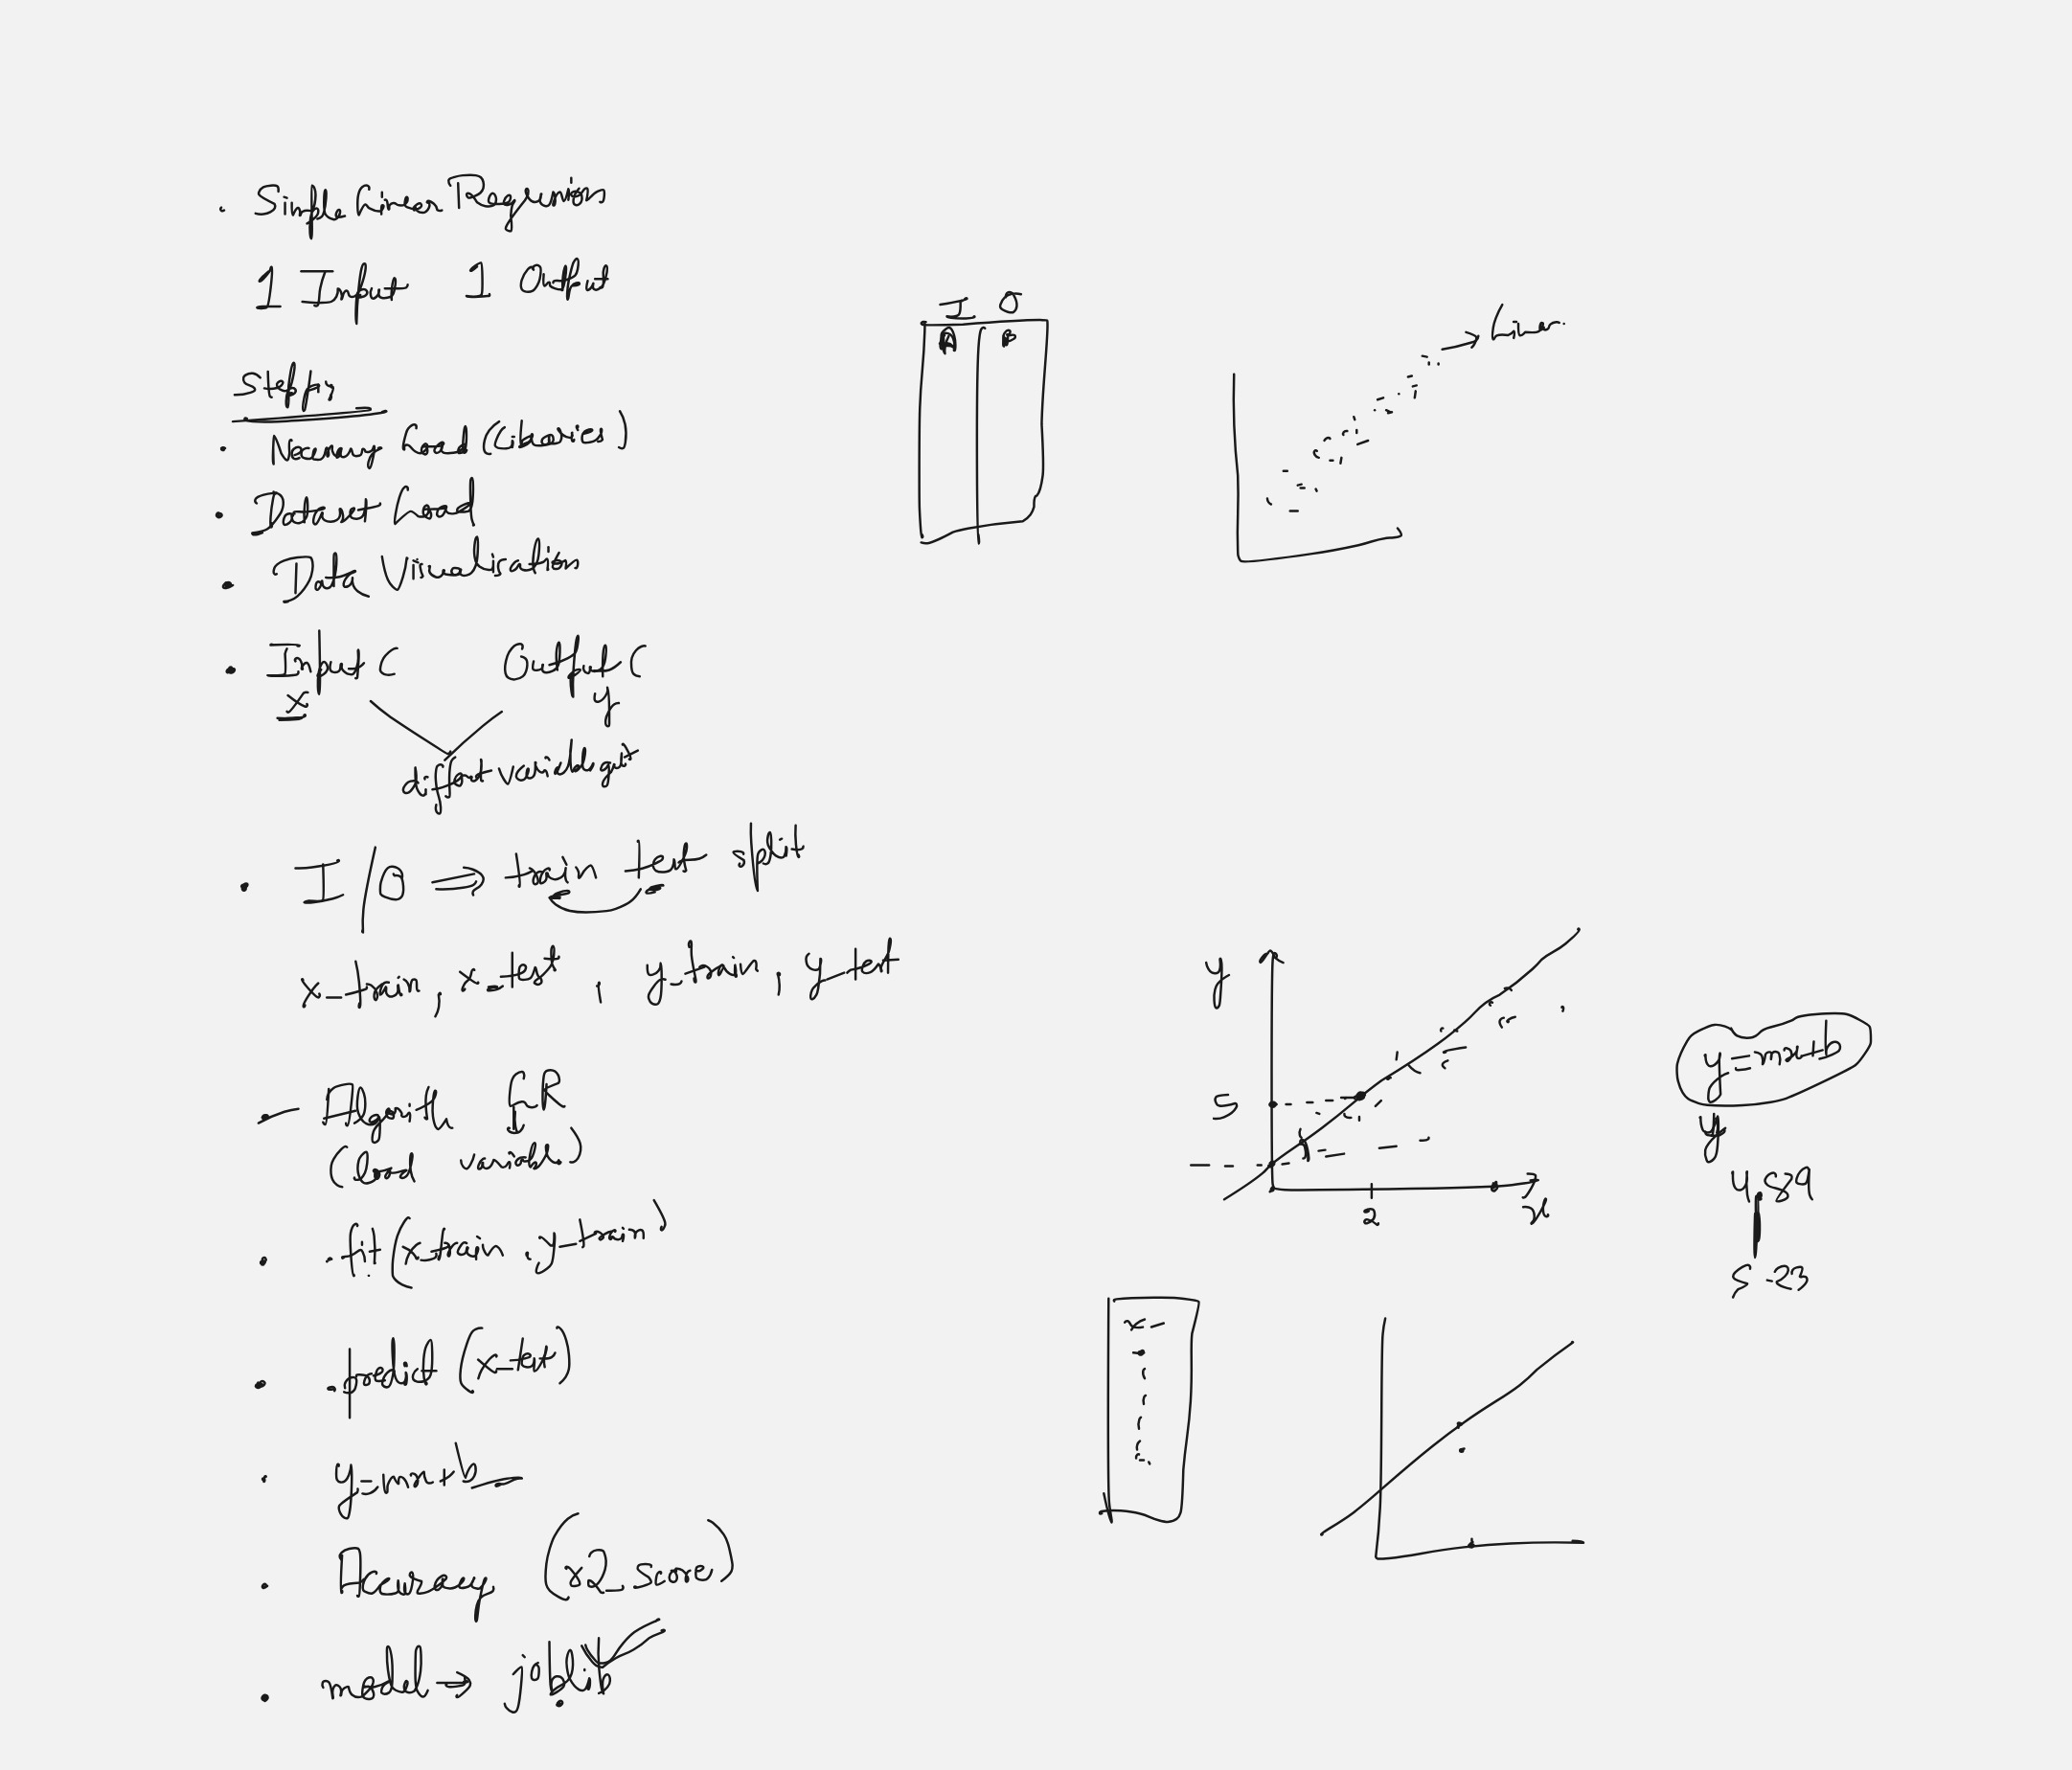 . Simple Linear Regression
1 Input 1 Output
Steps
. Necessary Load (Libraries)
. Dataset Load
. Data Visualisation
. Input C Output C
x y
different variable
. I/O ⇒ train test split
x_train, x_test, y_train, y_test
- Algorith LR
(load variable)
. .fit (x_train, y_train)
. .predict (x_test)
. y=mx+b
. Accuracy (r2_score)
. model → joblib
I O
A B
→ Linear
y
5
2
x
y=mx+b
y
4.89
5.23
x-